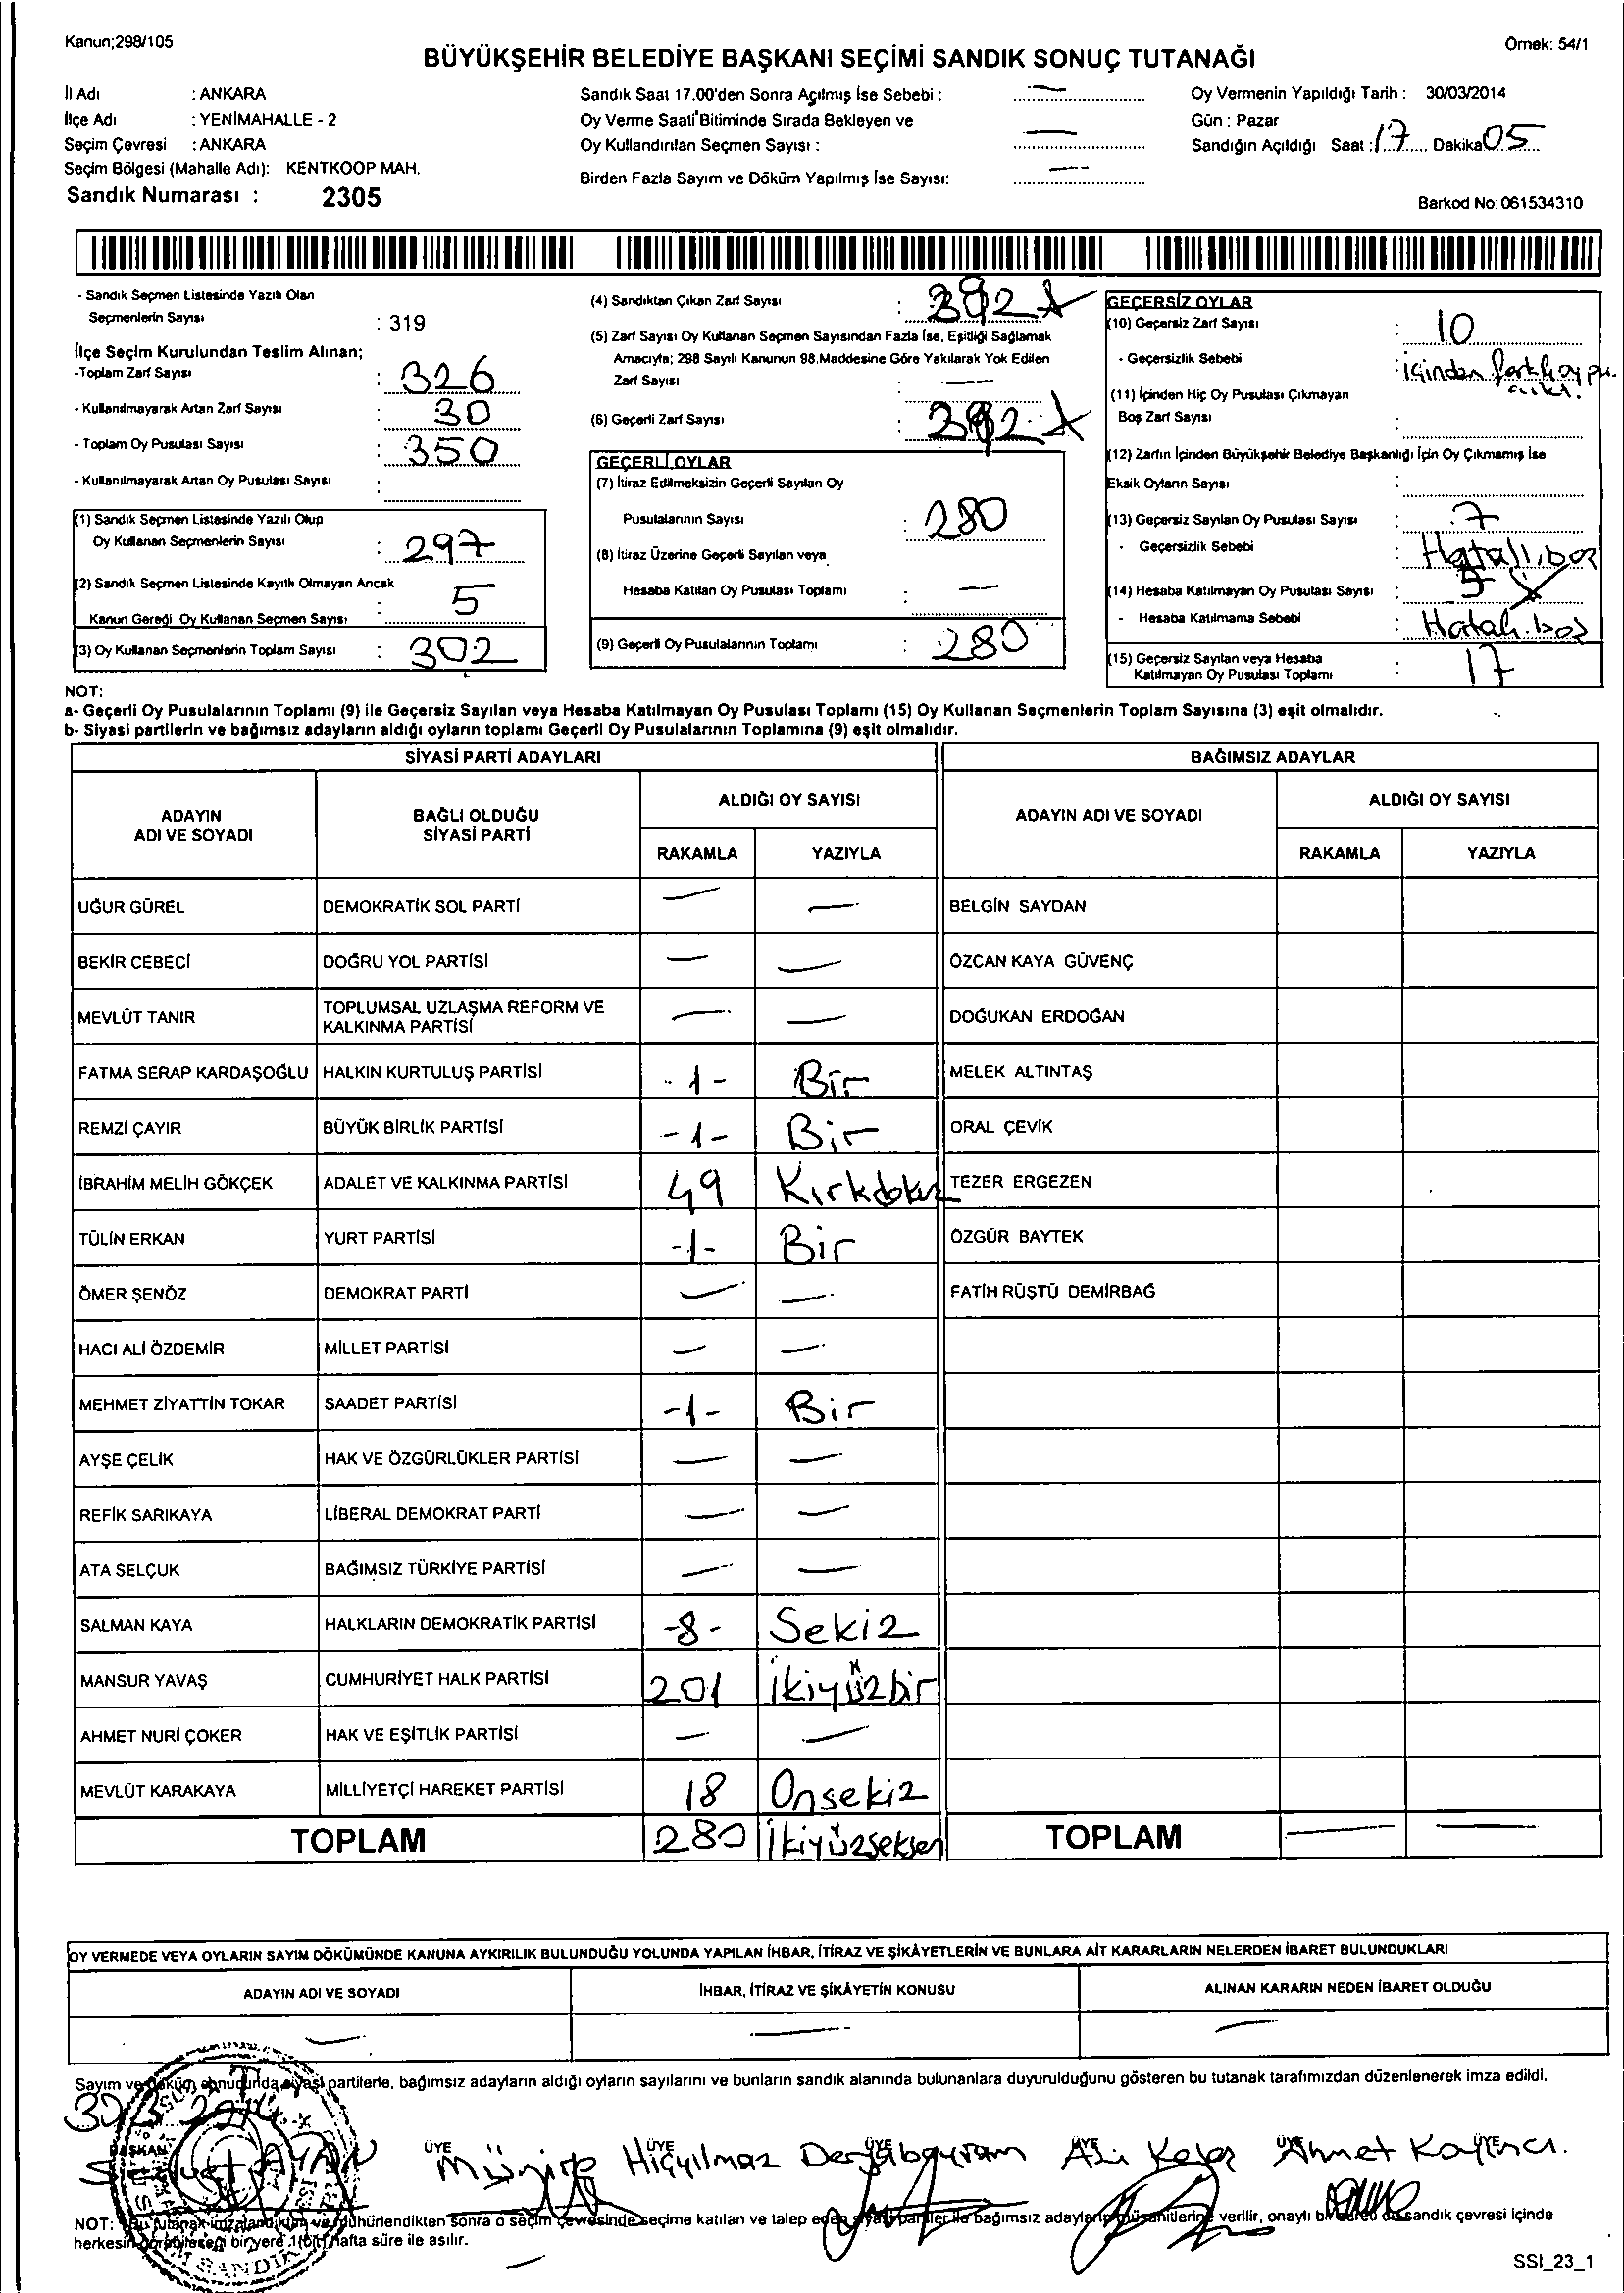 Kanun;298/105
Örnek: 54/1
BÜYÜKŞEHİR BELEDİYE BAŞKANI SEÇİMİ SANDIK SONUÇ TUTANAĞI
İl Adı : ANKARA
İlçe Adı : YENİMAHALLE - 2
Seçim Çevresi : ANKARA
Seçim Bölgesi (Mahalle Adı): KENTKOOP MAH.
Sandık Numarası : 2305
Sandık Saat 17.00'den Sonra Açılmış İse Sebebi : —
Oy Verme Saati Bitiminde Sırada Bekleyen ve
Oy Kullandırılan Seçmen Sayısı : —
Birden Fazla Sayım ve Döküm Yapılmış İse Sayısı: —
Oy Vermenin Yapıldığı Tarih : 30/03/2014
Gün : Pazar
Sandığın Açıldığı Saat : 17 Dakika 05
Barkod No: 061534310
- Sandık Seçmen Listesinde Yazılı Olan
Seçmenlerin Sayısı : 319
İlçe Seçim Kurulundan Teslim Alınan;
-Toplam Zarf Sayısı : 326
- Kullanılmayarak Artan Zarf Sayısı : 30
- Toplam Oy Pusulası Sayısı : 350
- Kullanılmayarak Artan Oy Pusulası Sayısı :
(1) Sandık Seçmen Listesinde Yazılı Olup
Oy Kullanan Seçmenlerin Sayısı : 297
(2) Sandık Seçmen Listesinde Kayıtlı Olmayan Ancak
Kanun Gereği Oy Kullanan Seçmen Sayısı : 5
(3) Oy Kullanan Seçmenlerin Toplam Sayısı : 302
(4) Sandıktan Çıkan Zarf Sayısı :
(5) Zarf Sayısı Oy Kullanan Seçmen Sayısından Fazla İse, Eşitliği Sağlamak
Amacıyla; 298 Sayılı Kanunun 98.Maddesine Göre Yakılarak Yok Edilen
Zarf Sayısı : —
(6) Geçerli Zarf Sayısı :
GEÇERLİ OYLAR
(7) İtiraz Edilmeksizin Geçerli Sayılan Oy
Pusulalarının Sayısı : 280
(8) İtiraz Üzerine Geçerli Sayılan veya
Hesaba Katılan Oy Pusulası Toplamı : —
(9) Geçerli Oy Pusulalarının Toplamı : 280
GEÇERSİZ OYLAR
(10) Geçersiz Zarf Sayısı : 10
- Geçersizlik Sebebi : içinden farklı oy pu.
çıktı.
(11) İçinden Hiç Oy Pusulası Çıkmayan
Boş Zarf Sayısı :
(12) Zarfın İçinden Büyükşehir Belediye Başkanlığı İçin Oy Çıkmamış İse
Eksik Oyların Sayısı :
(13) Geçersiz Sayılan Oy Pusulası Sayısı : 7
- Geçersizlik Sebebi : Hatalı, boş
(14) Hesaba Katılmayan Oy Pusulası Sayısı :
- Hesaba Katılmama Sebebi : Hatalı. boş
(15) Geçersiz Sayılan veya Hesaba
Katılmayan Oy Pusulası Toplamı : 17
NOT:
a- Geçerli Oy Pusulalarının Toplamı (9) ile Geçersiz Sayılan veya Hesaba Katılmayan Oy Pusulası Toplamı (15) Oy Kullanan Seçmenlerin Toplam Sayısına (3) eşit olmalıdır.
b- Siyasi partilerin ve bağımsız adayların aldığı oyların toplamı Geçerli Oy Pusulalarının Toplamına (9) eşit olmalıdır.
SİYASİ PARTİ ADAYLARI BAĞIMSIZ ADAYLAR
ADAYIN ADI VE SOYADI BAĞLI OLDUĞU SİYASİ PARTİ ALDIĞI OY SAYISI ADAYIN ADI VE SOYADI ALDIĞI OY SAYISI
RAKAMLA YAZIYLA RAKAMLA YAZIYLA
UĞUR GÜREL DEMOKRATİK SOL PARTİ — — BELGİN SAYDAN
BEKİR CEBECİ DOĞRU YOL PARTİSİ — — ÖZCAN KAYA GÜVENÇ
MEVLÜT TANIR TOPLUMSAL UZLAŞMA REFORM VE KALKINMA PARTİSİ — — DOĞUKAN ERDOĞAN
FATMA SERAP KARDAŞOĞLU HALKIN KURTULUŞ PARTİSİ -1- Bir MELEK ALTINTAŞ
REMZİ ÇAYIR BÜYÜK BİRLİK PARTİSİ -1- Bir ORAL ÇEVİK
İBRAHİM MELİH GÖKÇEK ADALET VE KALKINMA PARTİSİ 49 Kırkdokuz TEZER ERGEZEN
TÜLİN ERKAN YURT PARTİSİ -1- Bir ÖZGÜR BAYTEK
ÖMER ŞENÖZ DEMOKRAT PARTİ — — FATİH RÜŞTÜ DEMİRBAĞ
HACI ALİ ÖZDEMİR MİLLET PARTİSİ — —
MEHMET ZİYATTİN TOKAR SAADET PARTİSİ -1- Bir
AYŞE ÇELİK HAK VE ÖZGÜRLÜKLER PARTİSİ — —
REFİK SARIKAYA LİBERAL DEMOKRAT PARTİ — —
ATA SELÇUK BAĞIMSIZ TÜRKİYE PARTİSİ — —
SALMAN KAYA HALKLARIN DEMOKRATİK PARTİSİ -8- Sekiz
MANSUR YAVAŞ CUMHURİYET HALK PARTİSİ 201 İkiyüzbir
AHMET NURİ ÇOKER HAK VE EŞİTLİK PARTİSİ — —
MEVLÜT KARAKAYA MİLLİYETÇİ HAREKET PARTİSİ 18 Onsekiz
TOPLAM 280 İkiyüzseksen TOPLAM — —
OY VERMEDE VEYA OYLARIN SAYIM DÖKÜMÜNDE KANUNA AYKIRILIK BULUNDUĞU YOLUNDA YAPILAN İHBAR, İTİRAZ VE ŞİKÂYETLERİN VE BUNLARA AİT KARARLARIN NELERDEN İBARET BULUNDUKLARI
ADAYIN ADI VE SOYADI İHBAR, İTİRAZ VE ŞİKÂYETİN KONUSU ALINAN KARARIN NEDEN İBARET OLDUĞU
— — —
Sayım ve döküm sonucunda siyasi partilerle, bağımsız adayların aldığı oyların sayılarını ve bunların sandık alanında bulunanlara duyurulduğunu gösteren bu tutanak tarafımızdan düzenlenerek imza edildi.
BAŞKAN ÜYE ÜYE ÜYE ÜYE ÜYE ÜYE
AYAN Hiçyılmaz Ahmet
NOT: Bu tutanak imzalandıktan ve mühürlendikten sonra o seçim çevresinde seçime katılan ve talep eden siyasi partiler ile bağımsız adayların müşahitlerine verilir, onaylı bir sureti de sandık çevresi içinde
herkesin görebileceği bir yere 1(bir) hafta süre ile asılır.
SSI_23_1